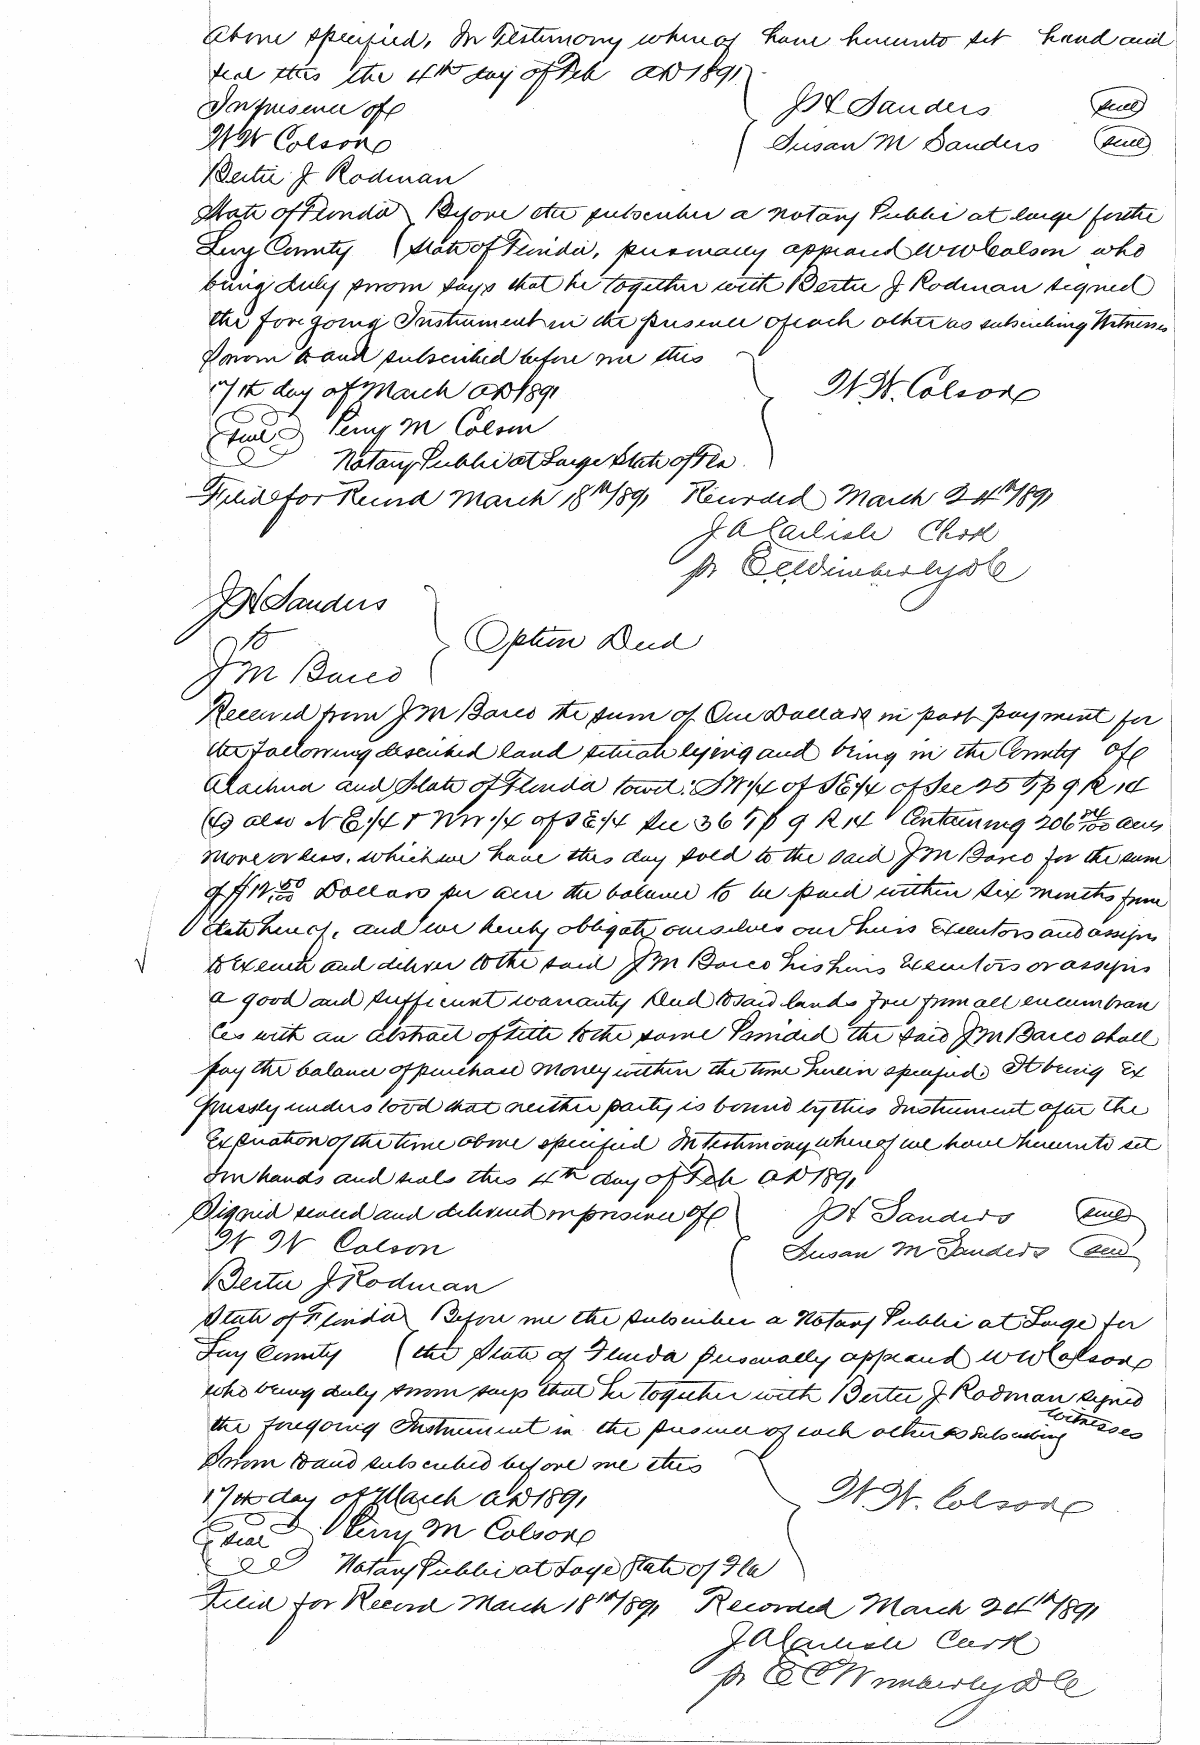 above specified. In Testimony whereof have hereunto set hand and
seal this the 4th day of Feb AD 1891
In presence of
W W Colson
J H Sanders seal
Susan M Sanders seal
Bertie J Rodman
State of Florida Before the subscriber a Notary Public at large for the
Levy County State of Florida, personally appeared W W Colson who
being duly sworn says that he together with Bertie J Rodman signed
the foregoing Instrument in the presence of each other as subscribing Witnesses
Sworn to and subscribed before me this
17th day of March AD 1891
W. W. Colson
Seal Perry M Colson
Notary Public at Large State of Fla.
Filed for Record March 18th/891 Recorded March 24th/891
J A Carlisle Clerk
pr E C Wimberly D C
J H Sanders
to
Option Deed
J M Barco
Received from J M Barco the sum of One Dollars in part payment for
the following described land situate lying and being in the County of
Alachua and State of Florida towit: SW 1/4 of SE 1/4 of Sec 25 Tp 9 R 14
(&) also N E 1/4 & NW 1/4 of S E 1/4 Sec 36 Tp 9 R 14 Containing 206 /100 acres
more or less, which we have this day sold to the said J M Barco for the sum
of $ Dollars per acre the balance to be paid within six months from
date hereof, and we hereby obligate ourselves our heirs Executors and assigns
to Execute and deliver to the said J M Barco his heirs Executors or assigns
a good and sufficient warranty Deed to said lands free from all encumbran
ces with an abstract of title to the same Provided the said J M Barco shall
pay the balance of purchase money within the time herein specified. It being Ex
pressly understood that neither party is bound by this Instrument after the
Expiration of the time above specified In testimony whereof we have hereunto set
our hands and seals this 4th day of Feb AD 1891
Signed sealed and delivered in presence of
W W Colson
J H Sanders seal
Susan M Sanders seal
Bertie J Rodman
State of Florida Before me the subscriber a Notary Public at Large for
Levy County the State of Florida personally appeared W W Colson
who being duly sworn says that he together with Bertie J Rodman signed
the foregoing Instrument in the presence of each other as subscribing Witnesses
Sworn to and subscribed before me this
17th day of March AD 1891
W. W. Colson
Seal Perry M Colson
Notary Public at Large State of Fla
Filed for Record March 18th/891 Recorded March 24th/891
J A Carlisle Clerk
pr E C Wimberly D C